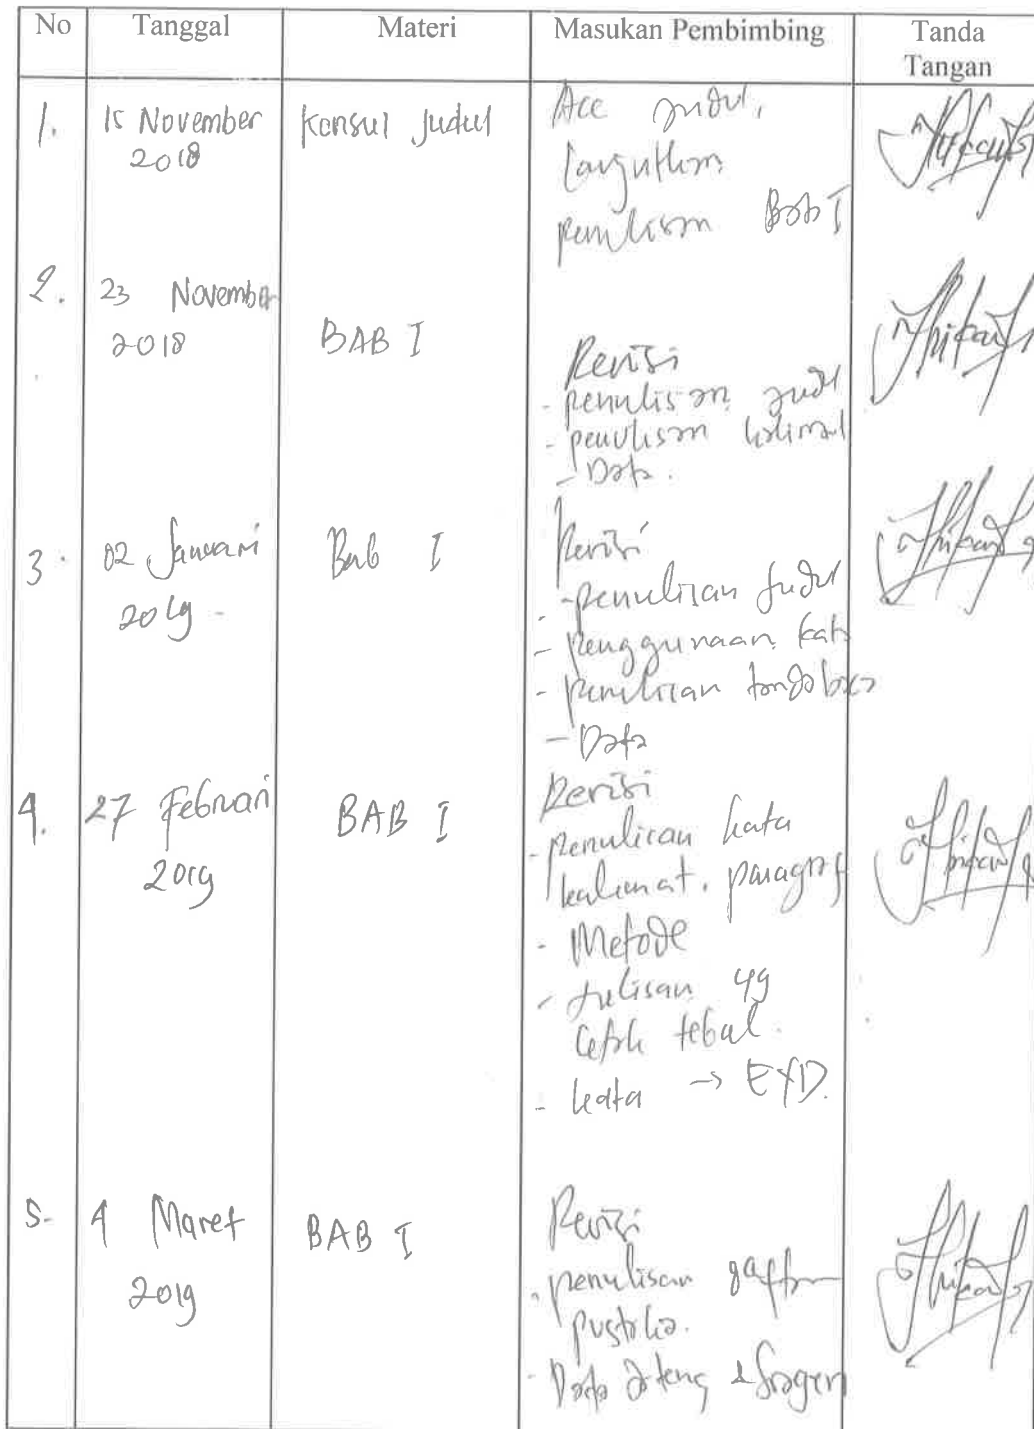 No Tanggal Materi Masukan Pembimbing Tanda Tangan
1. 15 November 2018
Konsul Judul
Acc judul,
lanjutkan
penulisan Bab I
2. 23 November 2018
BAB I
Revisi
- penulisan judul
- penulisan kalimat
- Data.
3. 02 Januari 2019
Bab I
Revisi
- penulisan judul
- penggunaan kata
- penulisan tanda baca
- Data
4. 27 Februari 2019
BAB I
Revisi
- penulisan kata
kalimat, paragraf
- Metode
- tulisan yg
cetak tebal.
- kata → EYD.
5. 4 Maret 2019
BAB I
Revisi
- penulisan daftar
pustaka.
- Data Jateng & Sragen